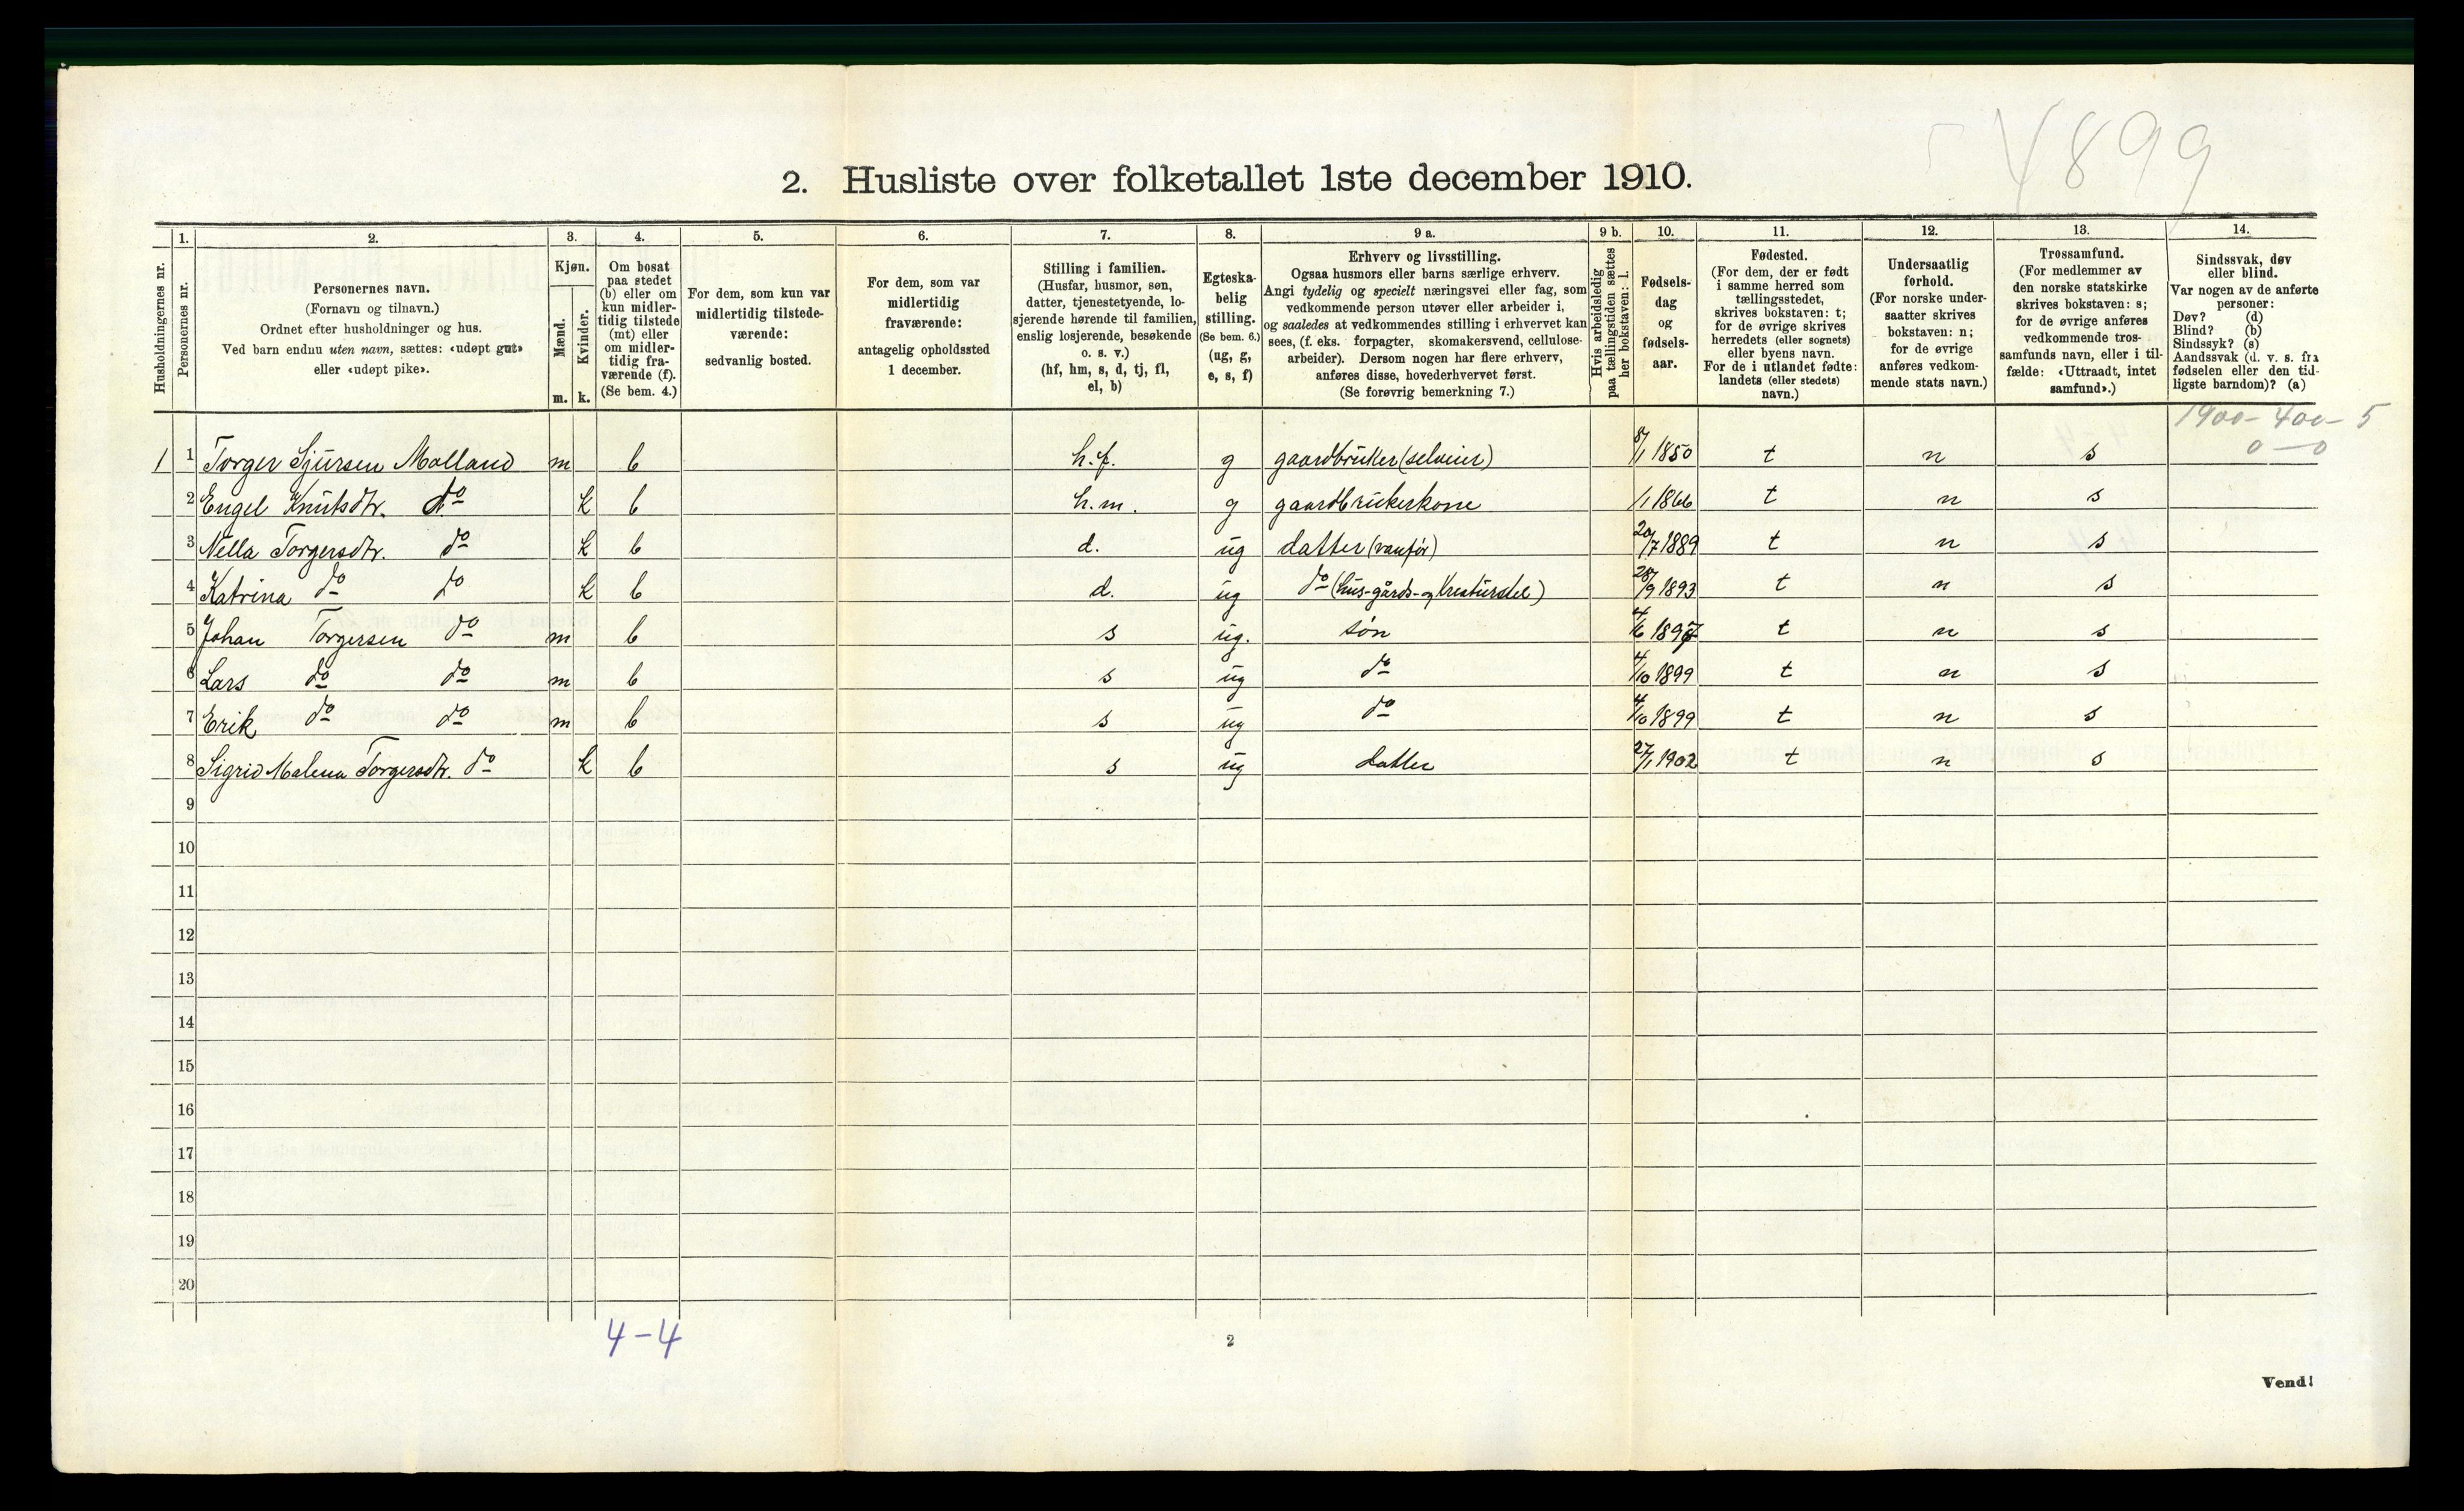 4899
2. Husliste over folketallet 1ste december 1910.
Husholdningernes nr.
1.
Personernes nr.
2.
Personernes navn.
(Fornavn og tilnavn.)
Ordnet efter husholdninger og hus.
Ved barn endnu uten navn, sættes: «udøpt gut»
eller «udøpt pike».
3.
Kjøn.
Mænd.
Kvinder.
m. k.
4.
Om bosat
paa stedet
(b) eller om
kun midler-
tidig tilstede
(mt) eller
om midler-
tidig fra-
værende (f).
(Se bem. 4.)
5.
For dem, som kun var
midlertidig tilstede-
værende:
sedvanlig bosted.
6.
For dem, som var
midlertidig
fraværende:
antagelig opholdssted
1 december.
7.
Stilling i familien.
(Husfar, husmor, søn,
datter, tjenestetyende, lo-
sjerende hørende til familien,
enslig losjerende, besøkende
o. s. v.)
(hf, hm, s, d, tj, fl,
el, b)
8.
Egteska-
belig
stilling.
(Se bem. 6.)
(ug, g,
e, s, f)
9 a.
Erhverv og livsstilling.
Ogsaa husmors eller barns særlige erhverv.
Angi tydelig og specielt næringsvei eller fag, som
vedkommende person utøver eller arbeider i,
og saaledes at vedkommendes stilling i erhvervet kan
sees, (f. eks. forpagter, skomakersvend, cellulose-
arbeider). Dersom nogen har flere erhverv,
anføres disse, hovederhvervet først.
(Se forøvrig bemerkning 7.)
9 b.
Hvis arbeidsledig
paa tællingstiden sættes
her bokstaven: l.
10.
Fødsels-
dag
og
fødsels-
aar.
11.
Fødested.
(For dem, der er født
i samme herred som
tællingsstedet,
skrives bokstaven: t;
for de øvrige skrives
herredets (eller sognets)
eller byens navn.
For de i utlandet fødte:
landets (eller stedets)
navn.)
12.
Undersaatlig
forhold.
(For norske under-
saatter skrives
bokstaven: n;
for de øvrige
anføres vedkom-
mende stats navn.)
13.
Trossamfund.
(For medlemmer av
den norske statskirke
skrives bokstaven: s;
for de øvrige anføres
vedkommende tros-
samfunds navn, eller i til-
fælde: «Uttraadt, intet
samfund».)
14.
Sindssvak, døv
eller blind.
Var nogen av de anførte
personer:
Døv? (d)
Blind? (b)
Sindssyk? (s)
Aandssvak (d. v. s. fra
fødselen eller den tid-
ligste barndom)? (a)
1900-400-5
0-0
1 1 Torger Sjursen Molland m b h.f. g gaardbruker (selveier) 8/1 1850 t n s
2 Engel Knutsdtr. do k b h.m. g gaardbrukerkone 1/1 1866 t n s
3 Nella Torgersdtr. do k b d. ug datter (vanfør) 20/7 1889 t n s
4 Katrina do do k b d. ug do (hus-gårds- og Kreaturstel) 28/9 1893 t n s
5 Johan Torgersen do m b s ug. søn 4/6 1897 t n s
6 Lars do do m b s ug do 4/10 1899 t n s
7 Erik do do m b s ug do 4/10 1899 t n s
8 Sigrid Malena Torgersdtr. do k b s ug datter 27/1 1902 t n s
9
10
11
12
13
14
15
16
17
18
19
20
4-4
2
Vend!